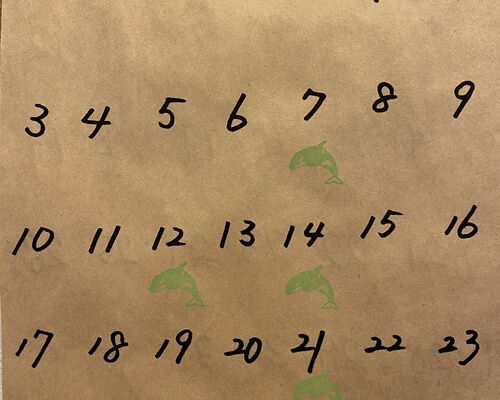 3 4 5 6 7 8 9
10 11 12 13 14 15 16
17 18 19 20 21 22 23